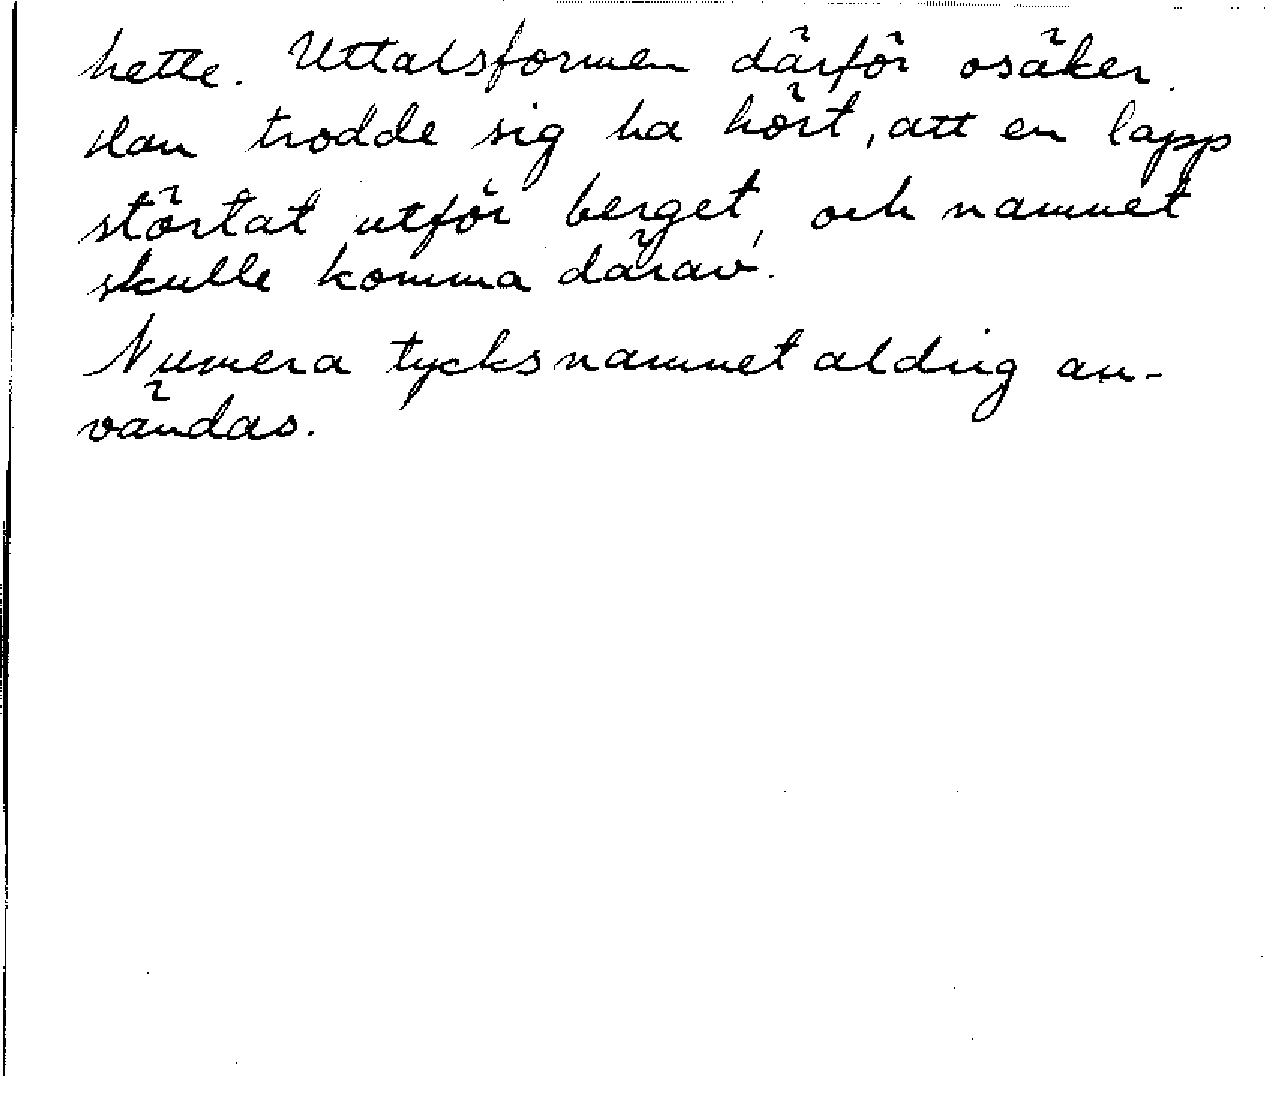 hette. Uttalsformen därför osäker.
Han trodde sig ha hört, att en lapp
störtat utför berget, och namnet
skulle komma därav.
Numera tycks namnet aldrig an-
vändas.